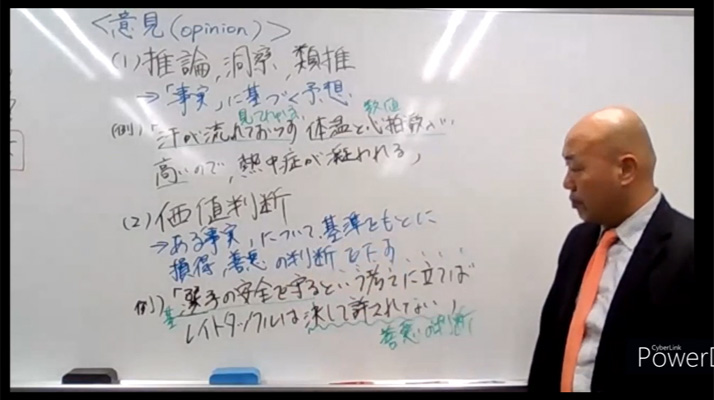 <意見(opinion)>
(1)推論,洞察,類推
→「事実」に基づく予想.
見てわかる 数値
(例)「汗が流れておらず 体温と心拍数が
高いので,熱中症が疑われる」
(2)価値判断
→ある事実,について,基準をもとに
損得,善悪の判断を下す
例)「選手の安全を守るという考えに立てば
基
レイトタックルは決して許されない」
善悪の判断
CyberLink
PowerD